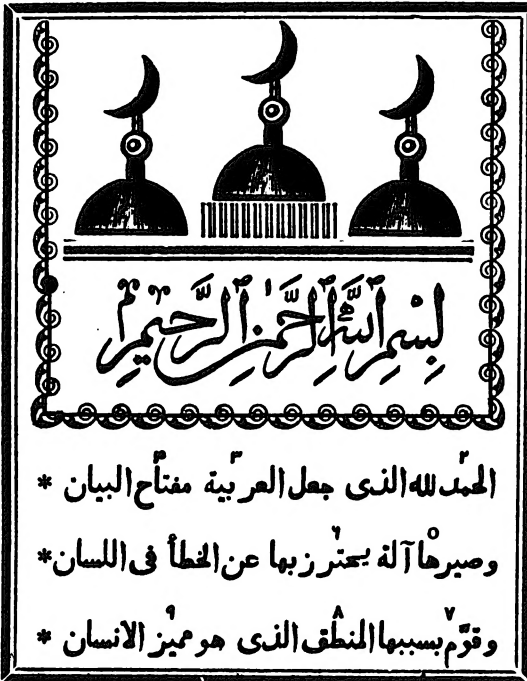 بِسْمِ اللَّهِ الرَّحْمٰنِ الرَّحِيمِ
الحمد٢ لله الذى جعل العر٣بية مفتاح٤ البيان *
وصيرها٥ آلة يحتر٦ز بها عن الخطأ فى اللسان *
وقوّم٧ بسببها المنطق٨ الذى هو مميز٩ الانسان *